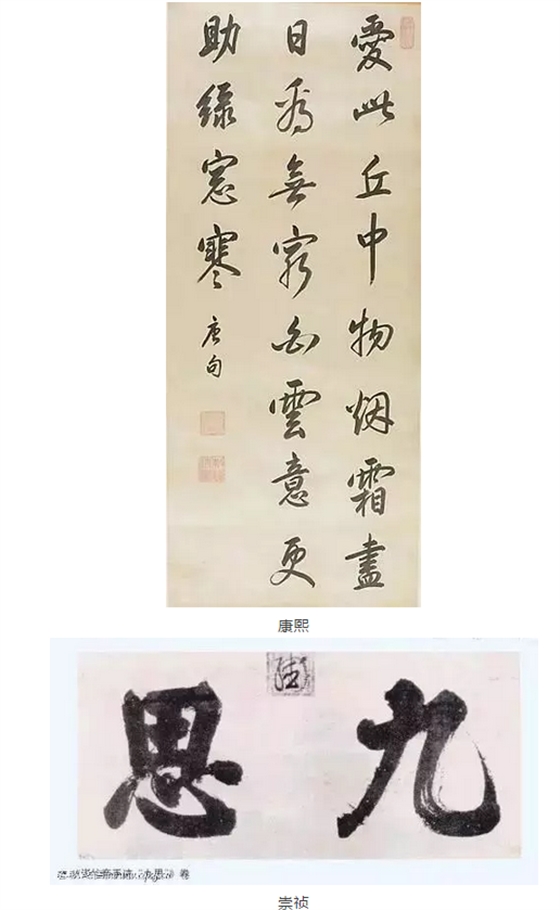 愛此丘中物烟霜盡
日看無窮白雲意更
助綠窓寒
唐句
康熙
九思
崇祯